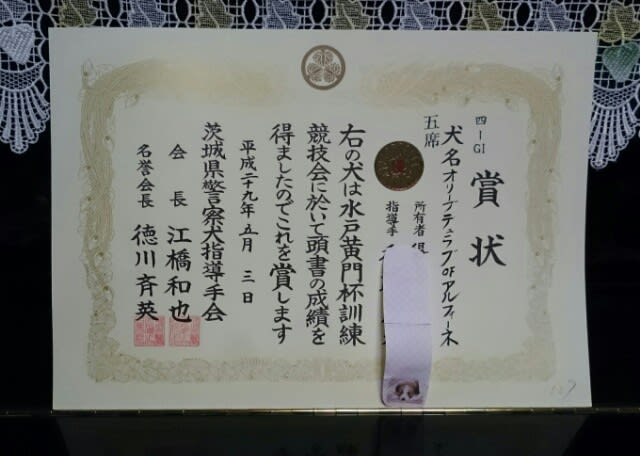 賞状
四ーGI
犬名オリーブデュラブOFアルフィーネ
五席
所有者
指導手
右の犬は水戸黄門杯訓練
競技会に於いて頭書の成績を
得ましたのでこれを賞します
平成二十九年五月三日
茨城県警察犬指導手会
会長 江橋和也
名誉会長 徳川斉英